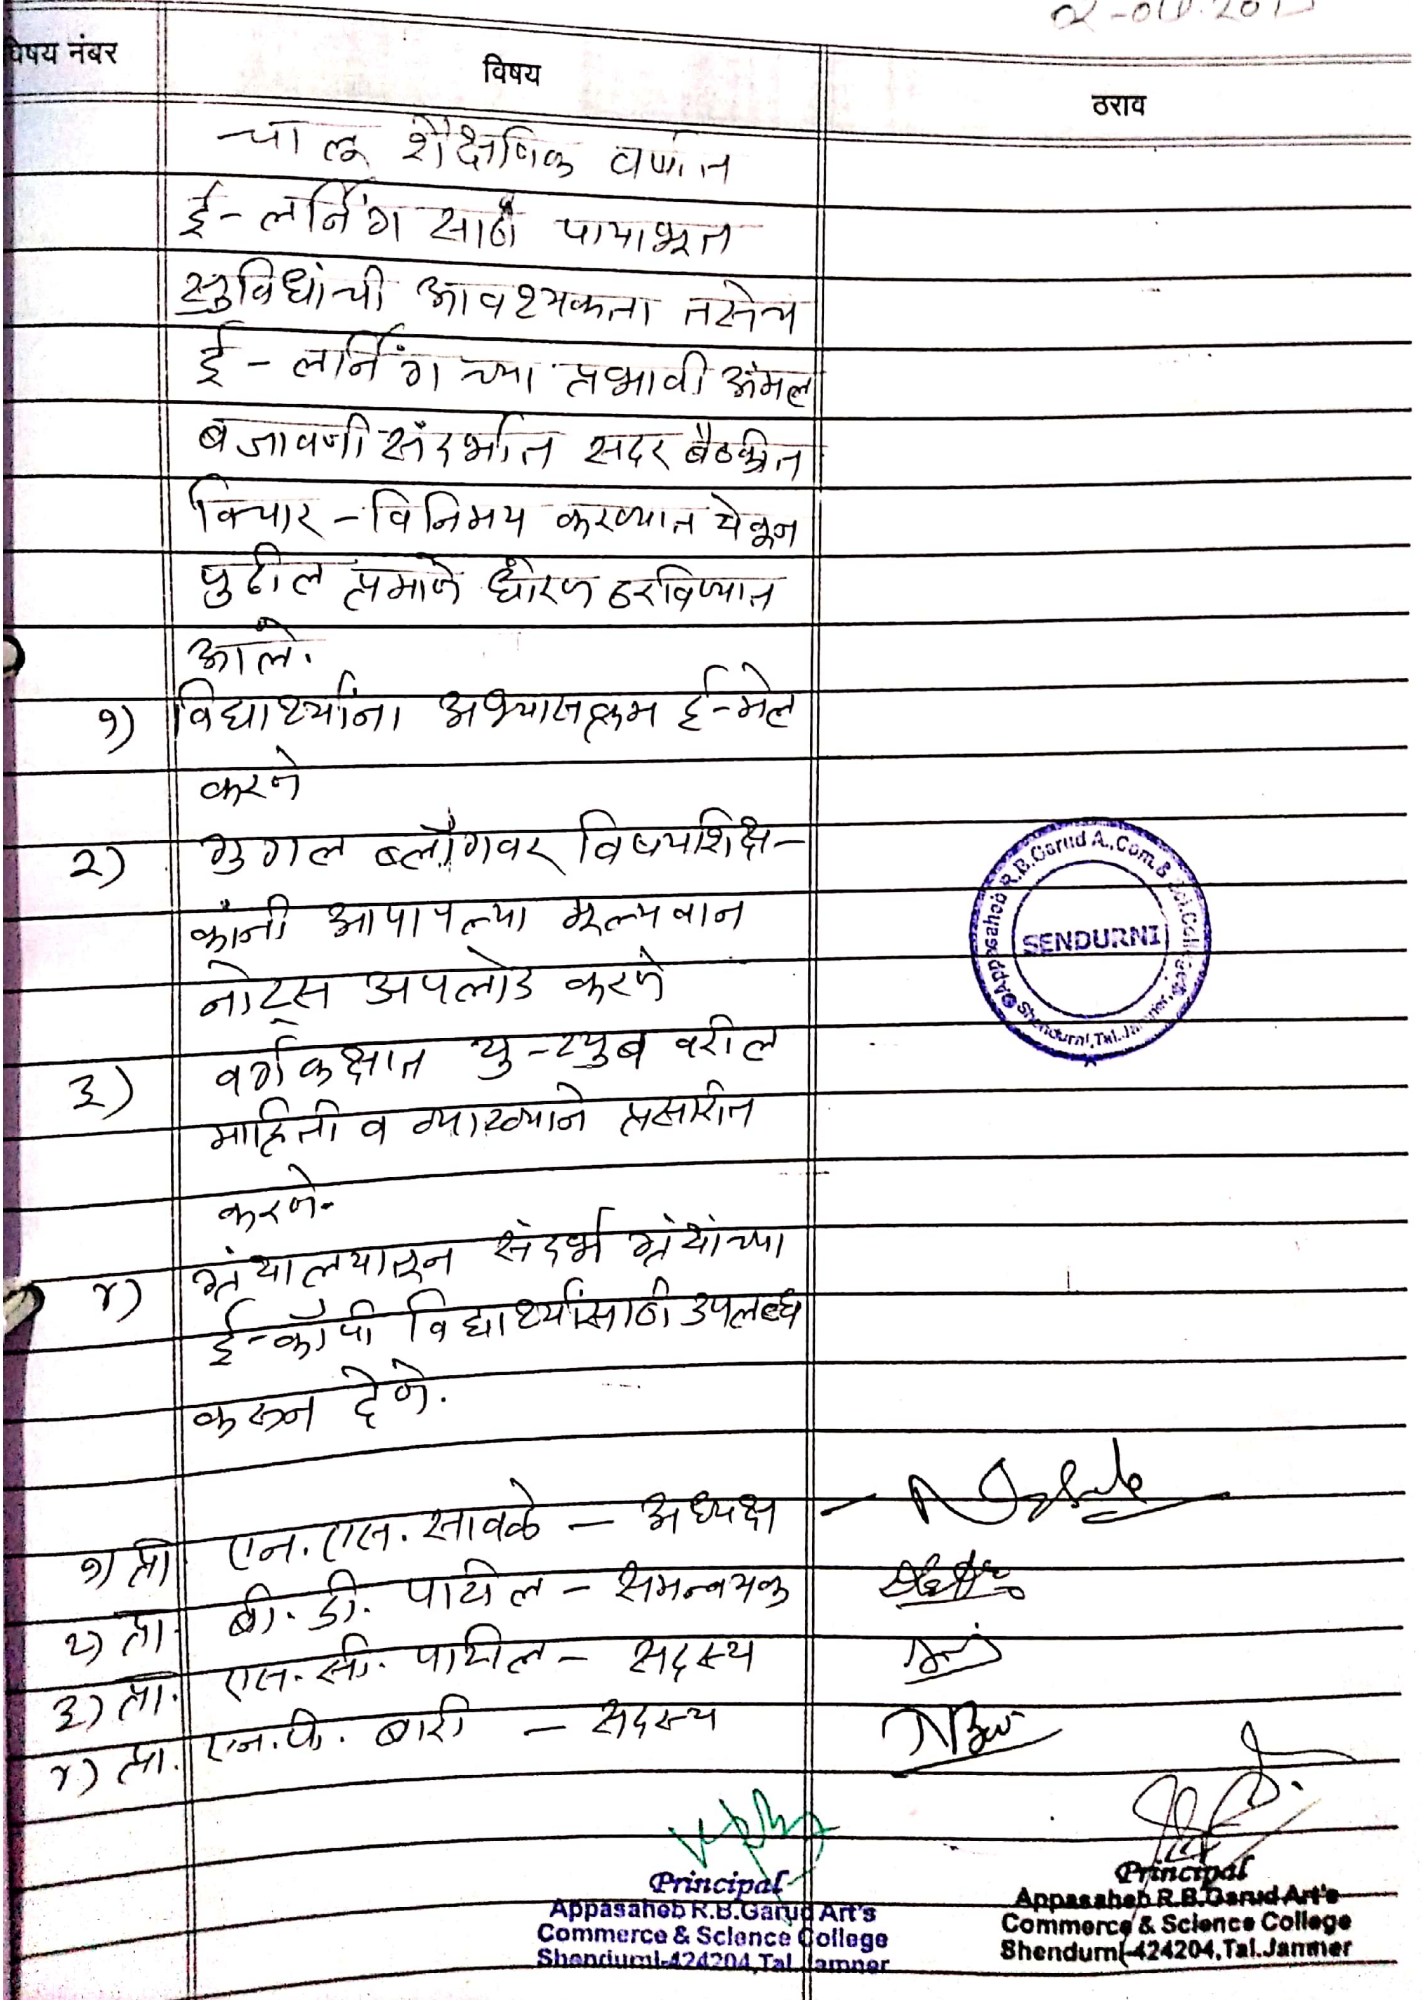 विषय नंबर विषय ठराव
चालू शैक्षणिक वर्षात
ई-लर्निंग साठी पायाभूत
सुविधांची आवश्यकता तसेच
ई-लर्निंग च्या प्रभावी अंमल
बजावणी संदर्भात सदर बैठकीत
विचार-विनिमय करण्यात येवून
पुढील प्रमाणे धोरण ठरविण्यात
आले.
१) विद्यार्थ्यांना अभ्यासक्रम ई-मेल
करने
२) गुगल ब्लॉगवर विषयशिक्ष-
कांनी आपापल्या मूल्यवान
नोट्स अपलोड करणे
३) वर्गकक्षात यु-ट्युब वरील
माहिती व व्याख्याने प्रसारीत
करणे.
४) ग्रंथालयातून संदर्भ ग्रंथांच्या
ई-कॉपी विद्यार्थ्यांसाठी उपलब्ध
करून देणे.
१) प्रा. एन. एस. सावळे - अध्यक्ष -
२) प्रा. बी. डी. पाटील - समन्वयक
३) प्रा. एस. सी. पाटील - सदस्य
४) प्रा. एन. पी. बारी - सदस्य
Appasaheb R.B.Garud A.,Com.& Sci.College
SENDURNI
Shendurni,Tal.Jamner
Principal
Appasaheb R.B.Garud Art's
Commerce & Science College
Shendurni-424204,Tal.Jamner
Principal
Appasaheb R.B.Garud Art's
Commerce & Science College
Shendurni-424204,Tal.Jamner